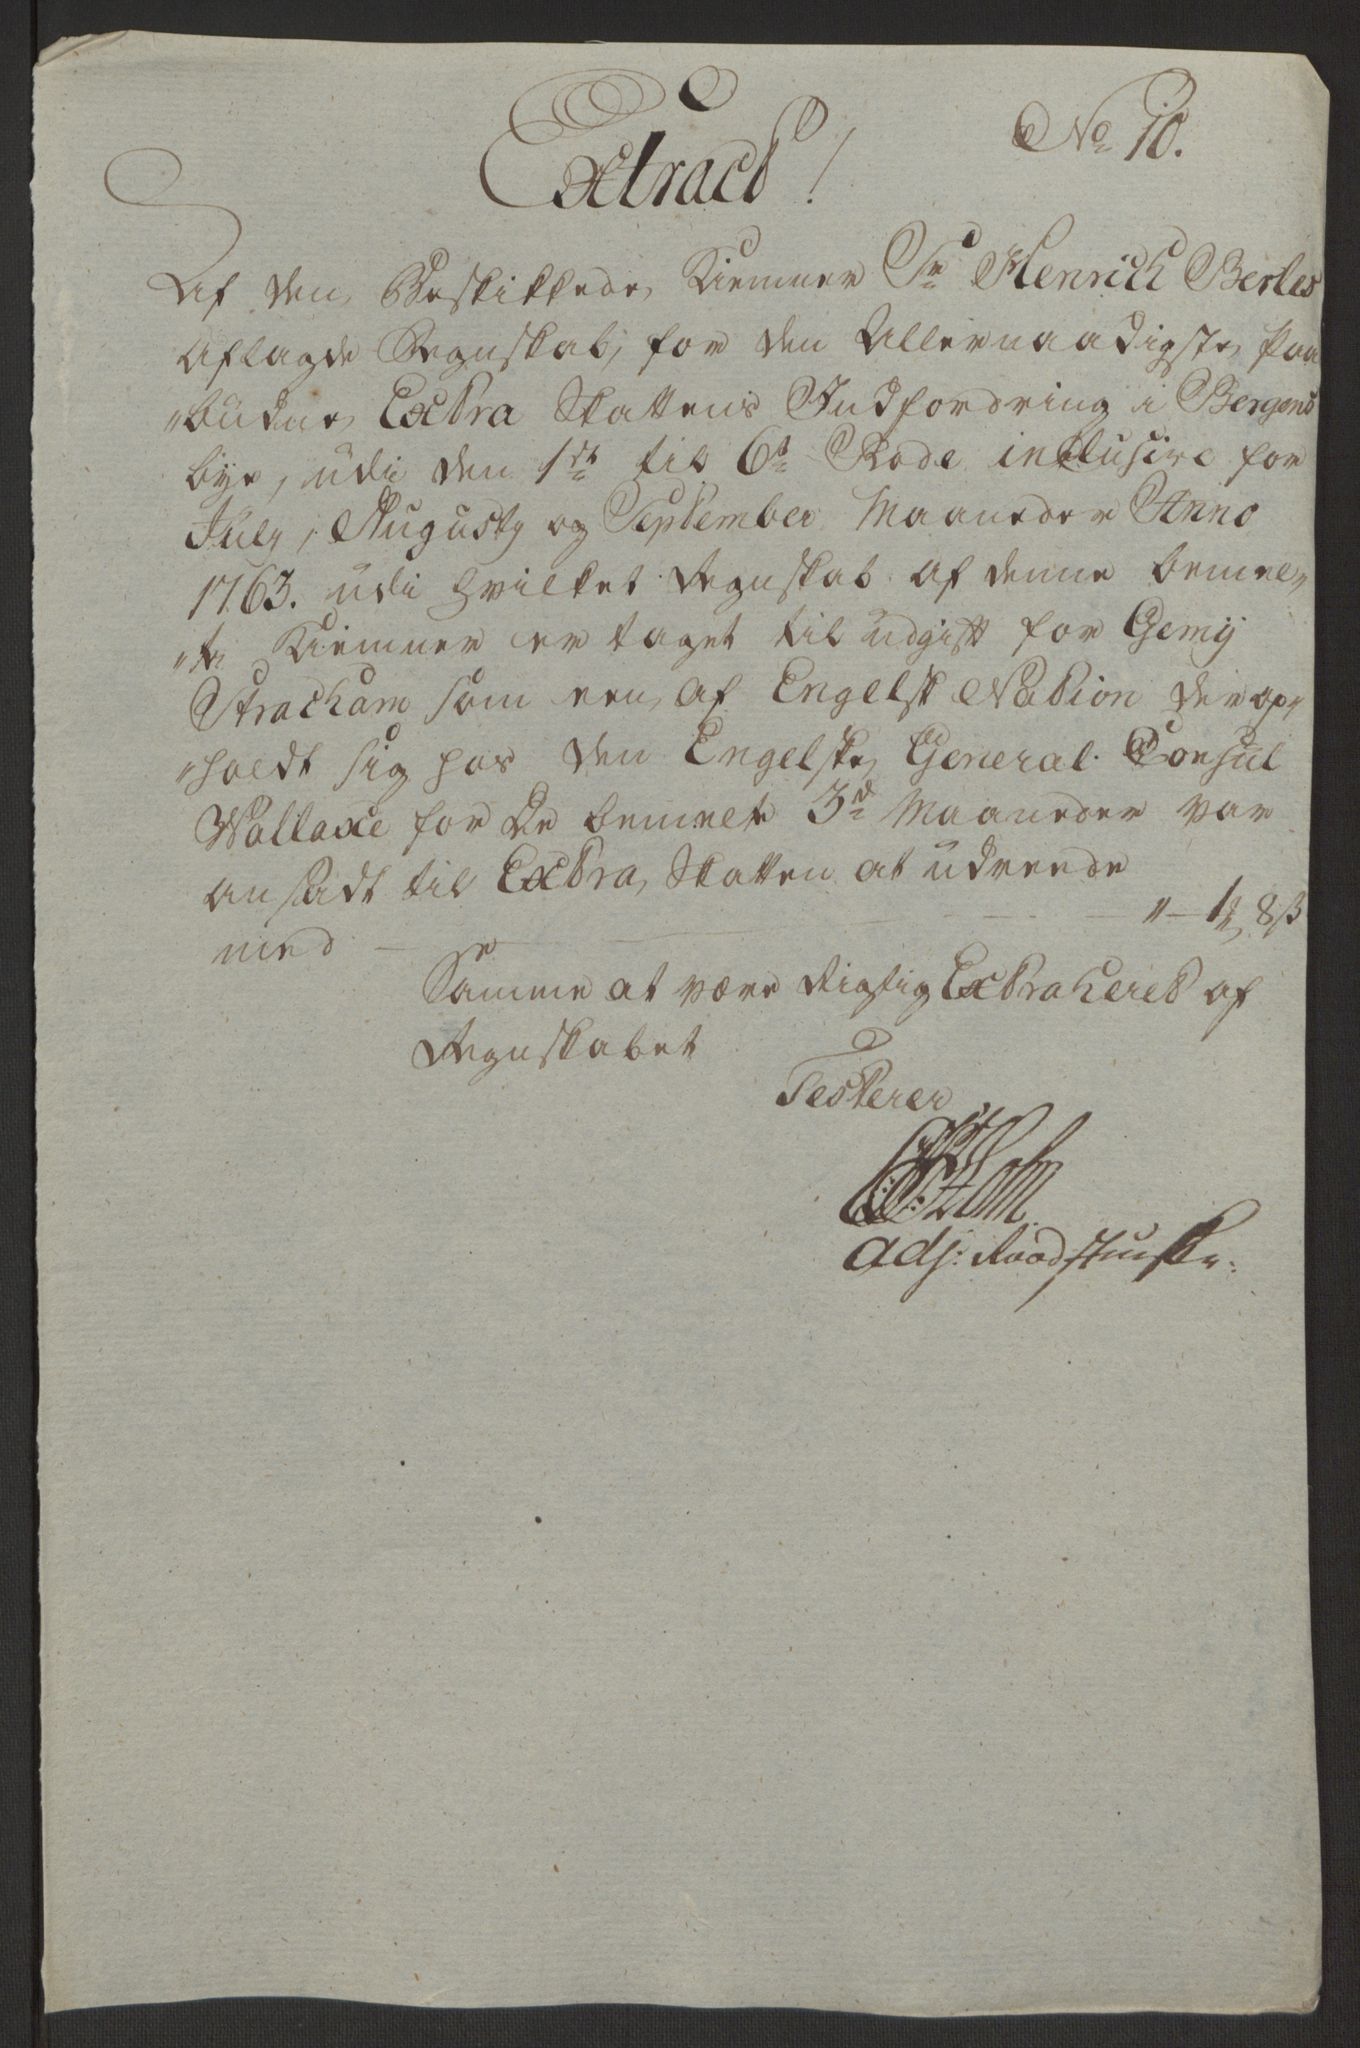 No 10.
Extract!
Af den Beskikkede Kiemner Sr Henrich Berles
aflagde Regnskab, for den Allernaadigste Paa
„budne Extra Skattens Indfordring i Bergens
bye, udi den 1ste til 6te Rode inclusive for
July, Augusty og September Maaneder Anno
1763. udi hvilket Regnskab af denne bemel„
„te Kiemner er taget til udgift for Gemij
Stracham som een af Engelsk Nation der op„
„holdt sig hos den Engelske General Consul
Wallace for De bemelte 3de Maaneder var
ansadt til Extra Skatten at udreede
med " – 1 8 ß
Samme at være Rigtig Extraheret af
Regnskabet
Testerer
Holm
adj: Raadstue